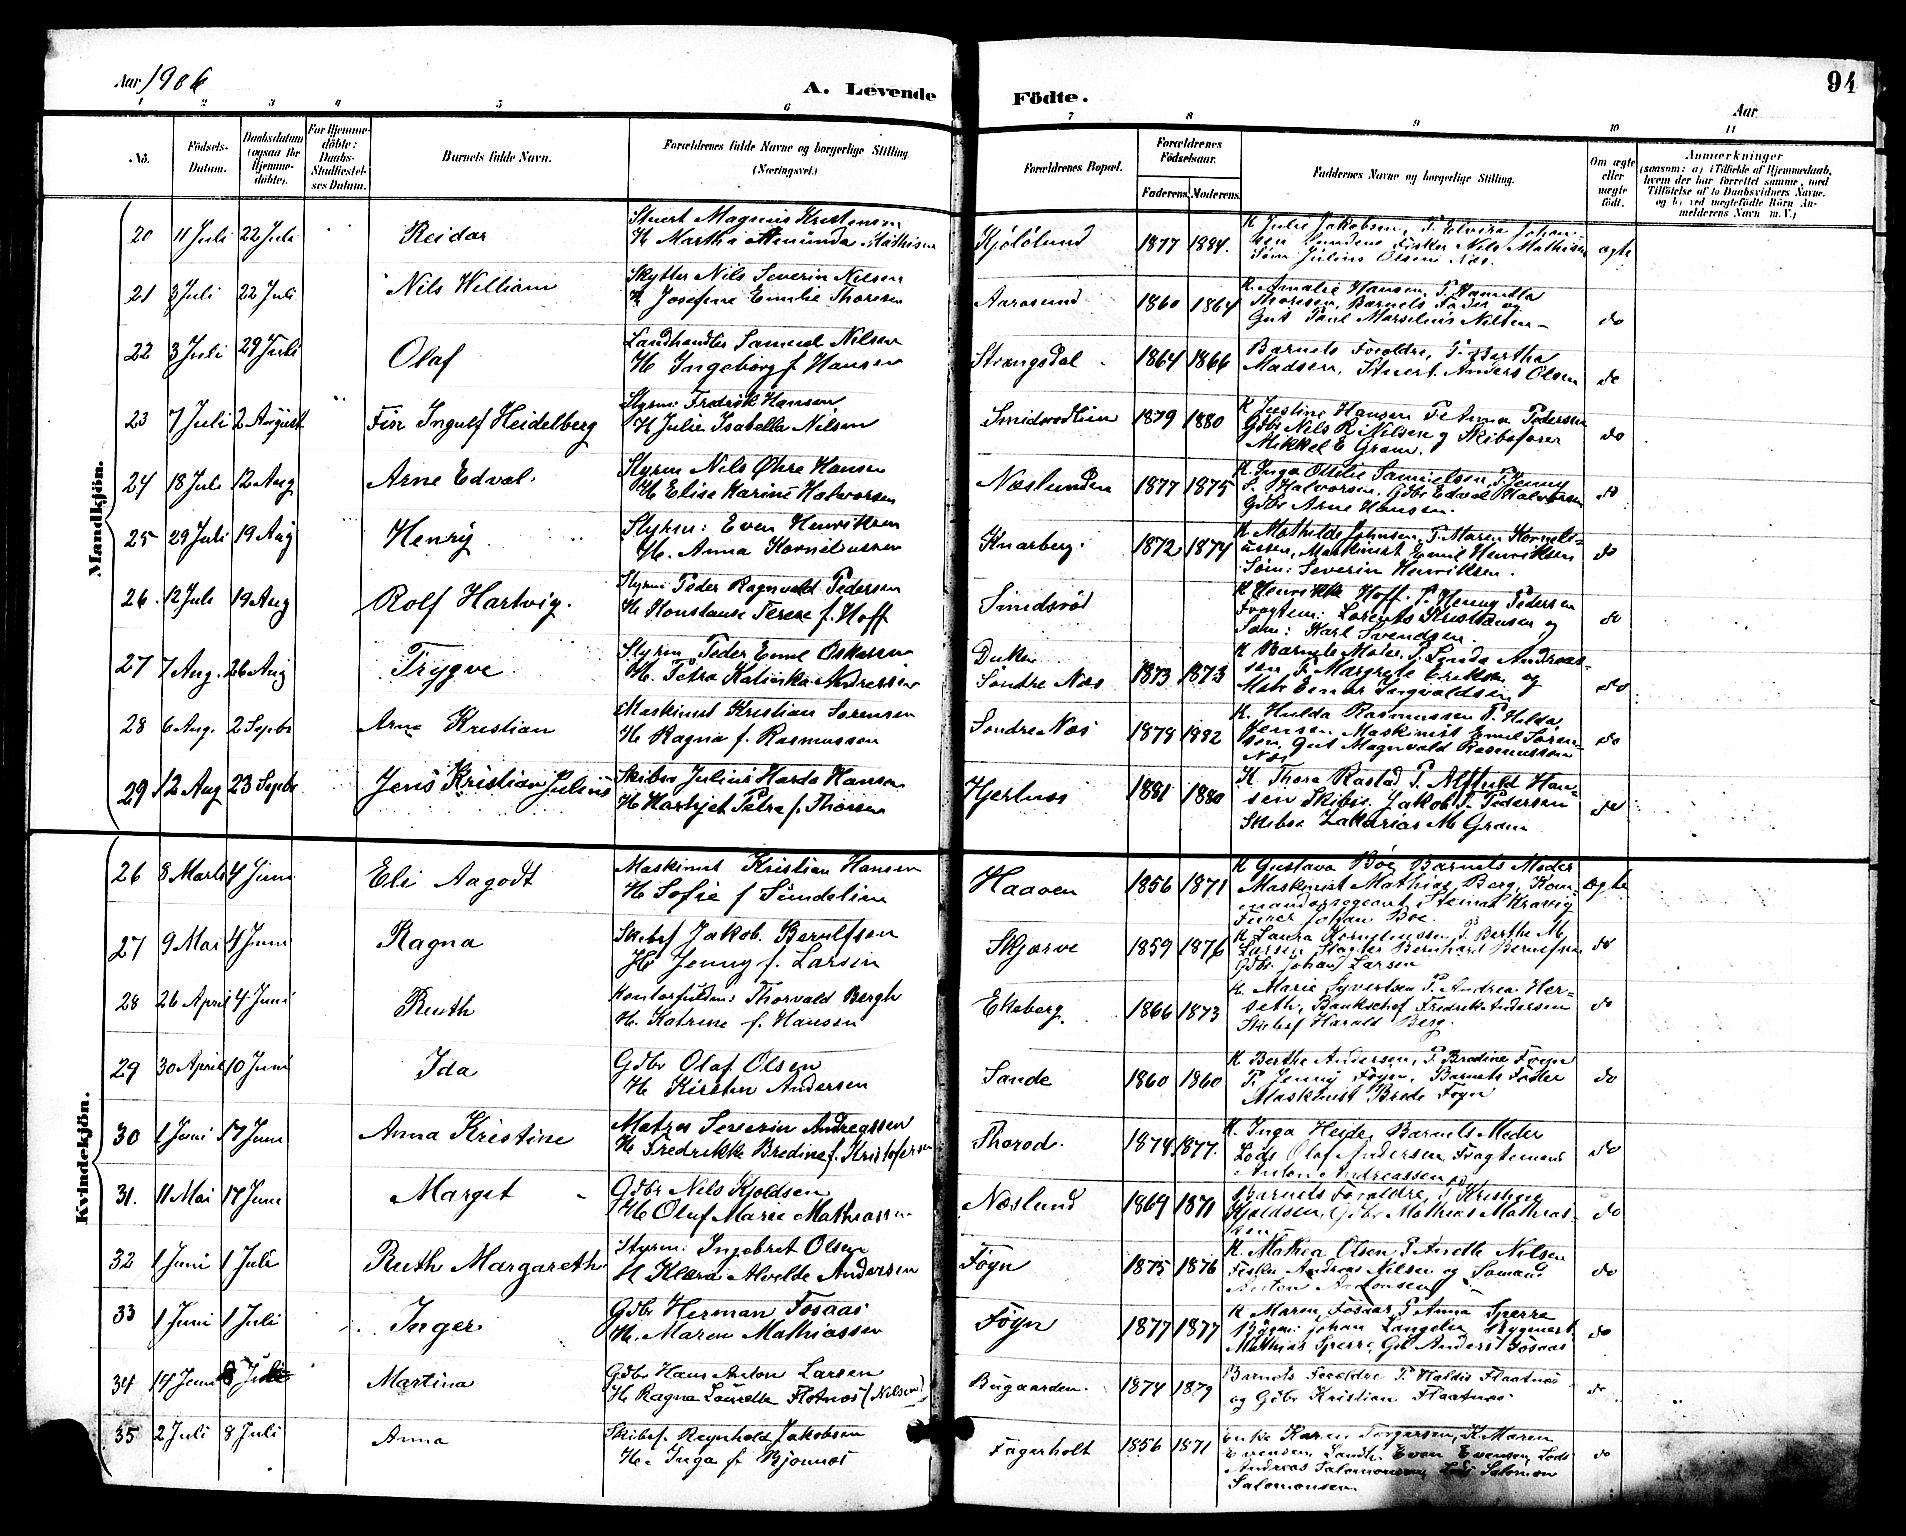 Aar 1906
A. Levende
Födte.
94
Aar
1 2 3 4 5 6 7 8 9 10 11
No.
Födsels-Datum.
Daabsdatum (ogsaa for Hjemmedöbte).
For Hjemmedöbte: Daabs-Stadfæstelses Datum.
Barnets fulde Navn.
Forældrenes fulde Navne og borgerlige Stilling (Næringsvei.)
Forældrenes Bopæl.
Forældrenes Födselsaar.
Faderens. Moderens.
Faddernes Navne og borgerlige Stilling.
Om ægte eller uægte födt.
Anmærkninger
(saasom: a) i Tilfælde af Hjemmedaab, hvem der har forrettet samme, med Tilföielse af to Daabsvidners Navne. og b) ved uægtefödte Börn Anmelderens Navn m. V.)
Mandkjön.
20 11 Juli 22 Juli Reidar
Stuert Magnus Kristensen
H Martha Amunda Mathisen
Kjölölund 1877 1884.
K Julie Jakobsen, P. Elvira Johan-
sen Fisker Nils Mathisen
Söm Julius Olsen Næs.
ægte
21 3 Juli 22 Juli Nils William
Skytter Nils Severin Nilsen
H Josefine Emilie Thoresen
Aarosund 1860 1864
K Amalie Hansen, P.
Thoresen, Barnets Fader og
Gut Paul Marselius Nilsen
do
22 3 Juli 29 Juli Olaf
Landhandler Samuel Nilsen
H Ingeborg f. Hansen
Strængsdal 1864 1866
Barnets Forældre, P. Bertha
Madsen, Stuert Anders Olsen
do
23 7 Juli 2 August Fin Ingulf Heidelberg
Styrm: Fredrik Hansen
H Julie Isabella Nilsen
1879 1880
K Justine Hansen P Anna Pedersen
Gdbr Nils R. Nilsen og Skibsförer
Mikkel E Gram.
do
24 18 Juli 12 Aug Arne Edval.
Styrm Nils Öhre Hansen
H Elise Karine Halvorsen
Næslunden 1877 1875
K. Inga Otilie Samuelssen, P. Jenny
S. Halvorsen, Gdbr Edval Halvorsen
Gdbr Arne Hanssen.
do
25 29 Juli 19 Aug Henry
Styrm: Even Henriksen
H. Anna Korneliussen
Knarberg. 1872 1874
K Mathilde Johnsen, P. Maren Korneli-
ussen, Maskinist Emil Henriksen
Söm: Severin Henriksen.
do
26. 12 Juli 19 Aug Rolf Hartvig.
Styrm: Peder Ragnvald Pedersen
H Konstanse Terese f. Hoff
Smidsröd
K Henrikke Hoff. P. Henny Pedersen
Fragtem: Lorents Kristiansen og
Söm: Karl Svendsen.
do
27 7 Aug. 26 Aug Trygve
Styrm Peder Emil Oskarsen
H. Petra Katinka Andressen
Duken
Söndre Næs 1873 1873
K Barnets Moder, P. Andreas-
sen P. Margrete Eriksen og
Matr Einar Ingvaldsen
do
28 6 Aug. 2 Septbr Arne Kristian
Maskinist Kristian Sörensen
H. Ragna f. Rasmusson
Söndre Næs 1878 1882
K. Hulda Rasmussen P. Hilda
Jensen, Maskinist Emil Sören-
sen, Gut Magnvald Rasmussen
Næs
do
29 12 Aug 23 Septbr Jens Kristian Julius
Skibsf Julius Hansen
H Petra f. Thorsen
Hjertnes 1881 1880
K Thora Rastad P. Alfhild Han-
sen Skibsf. Jakob P. Pedersen
Skibsf Zakarias M Gram
do
Kvindekjön.
26 8 Marts 4 Juni Eli Aagodt
Maskinist Kristian Hansen
H Sofie f Sundelin
Haaven 1856 1871
K Gustava Böe Barnets Moder
Maskinist Mathias Berg, Kom-
mandersergeant Steinar
Furer Johan Böe.
ægte
27 9 Mai 4 Juni Ragna
Skibsf Jakob. Berulfsen
H Jenny f. Larsen
Skjærve 1859 1876
K Laura Korneliussen, P. Berthe M
Larsen, Bernhard
Gdbr. Johan Larsen
do
28 26 April 4 Juni Ruth
Kontorfuldm: Thorvald Bergh
H. Katrine f. Hansen
Ekeberg. 1866 1873
K. Marie Syvertsen P. Andrea Her-
seth, Bankchef Fredrik Andersen
Skibsf Harald Berg.
do
29 30 April 10 Juni Ida
Gdbr Olaf Olsen
H Kirsten Andersen
Sande 1860 1860
K Berthe Andersen, P. Bredine Föyn
P. Jenny Föyn, Barnets Fader
Maskinist Brede Föyn
do
30 1 Juni 17 Juni Anna Kristine
Matros Severin Andreassen
H Fredrikke Bredine f. Kristofersen
Thoröd. 1874 1877.
K. Inga Heide, Barnets Moder
Lods Olaf Andersen Fragtemand
Anton Andreassen
do
31. 11 Mai 17 Juni Margit
Gdbr Nils Kjoldsen
H Oluf Marie Mathiassen
Næslund 1869 1871
Barnets Forældre, P Kristine
Kjoldsen, Gdbr Mathias Mathias-
sen
do
32 1 Juni 1 Juli Ruth Margarethe
Styrm: Ingebret Olsen
H Klara Alvilde Andersen
Föyn 1875 1876
K. Mathea Olsen P Anette Nilsen
Fisker Andreas Nilsen og Sömand
Anton Antonsen
do
33 1 Juni 1 Juli Inger
Gdbr Herman Fosaas
H. Maren Mathiassen
Föyn 1877 1877
K Maren Fosaas P Anna Sperre
Johan Langelu Bygmest
Mathias Sperre, Gdb Anders Fosaas
do
34 14 Juni 8 Juli Martina
Gdbr Hans Anton Larsen
H Ragna Lauretta Flotnes (Nilsen)
Bugaarden. 1874 1879
Barnets Forældre P Haldis Flaatnes
og Gdbr Kristian Flaatnes
do
35 2 Juli 8 Juli Anna
Skibsf. Reynhold Jakobsen
H. Inga f. Björnnes
Fagerholt 1856 1871
Enke Karen Torgersen, K. Maren
Evensen, Landh. Even Evensen, Lods
Andreas Salomonsen, Lods Salomon
Salomonsen
do